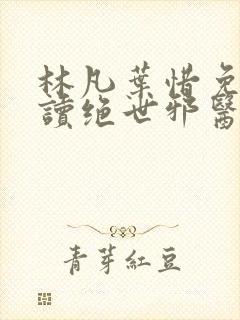 林凡葉惜免
讀绝世邪醫
青芽紅豆